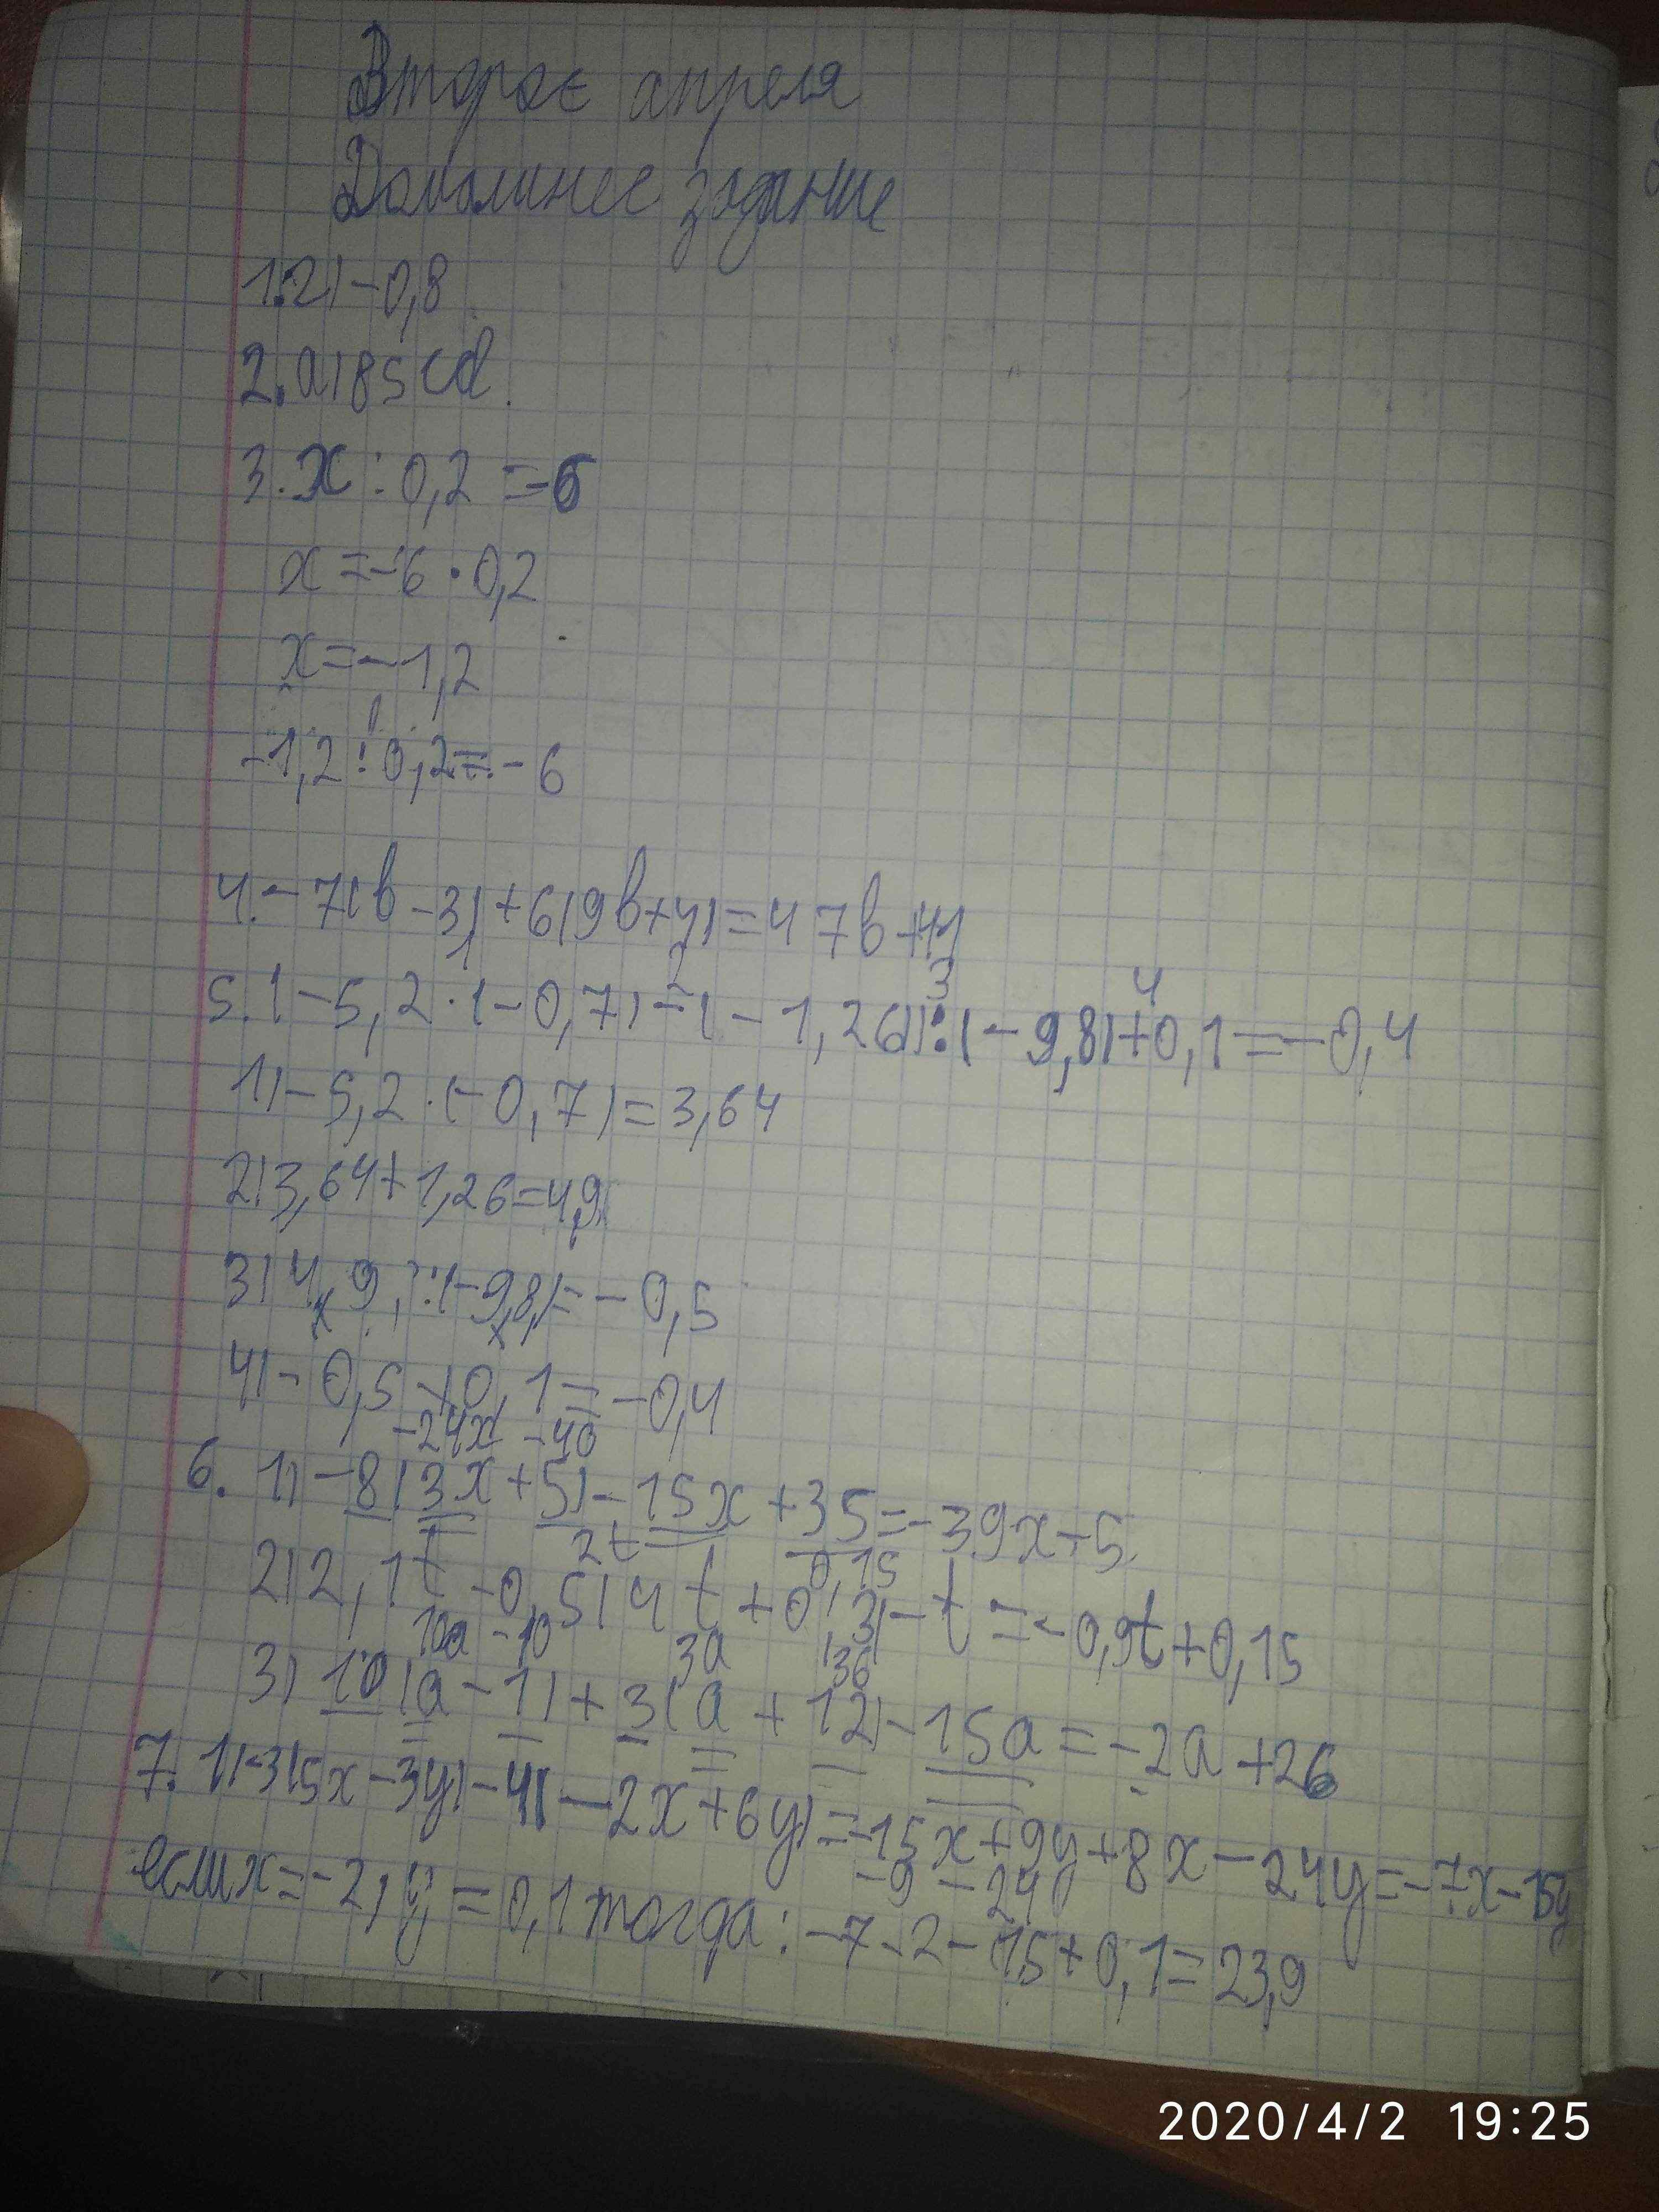 Второе апреля
Домашнее задание
1.2) -0,8
2. а) 85cd
3. x : 0,2 = -6
x = -6 · 0,2
x = -1,2
-1,2 : 0,2 = -6
4. -7(b - 3) + 6(9b + 4) = 47b +
1 2 3 4
5. (-5,2 · (-0,7) - (-1,26)) : (-9,8) + 0,1 = -0,4
1) -5,2 · (-0,7) = 3,64
2) 3,64 + 1,26 = 4,9
3) 4,9 : (-9,8) = -0,5
4) -0,5 + 0,1 = -0,4
-24x -40
6. 1) -8(3x + 5) - 15x + 35 = -39x - 5
2t 0,15
2) 2,1t - 0,5(4t + 0,3) - t = -0,9t + 0,15
10a -10 3a 36
3) 10(a - 1) + 3(a + 12) - 15a = -2a + 26
7. 1) -3(5x - 3y) - 4(-2x + 6y) = -15x + 9y + 8x - 24y = -7x - 15y
-9 -24
если x = -2, y = 0,1 тогда: -7 - 2 - 15 + 0,1 = 23,9
2020/4/2 19:25